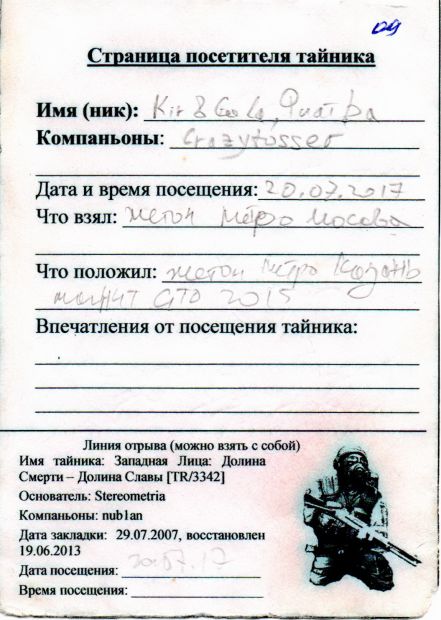 09
Страница посетителя тайника
Имя (ник): Kit &
Компаньоны: Crazytosser
Дата и время посещения: 20.07.2017
Что взял: жетон метро Москва
Что положил: жетон метро Казань
магнит GTO 2015
Впечатления от посещения тайника:
Линия отрыва (можно взять с собой)
Имя тайника: Западная Лица: Долина
Смерти – Долина Славы [TR/3342]
Основатель: Stereometria
Компаньоны: nub1an
Дата закладки: 29.07.2007, восстановлен
19.06.2013
Дата посещения: 20.07.17
Время посещения: